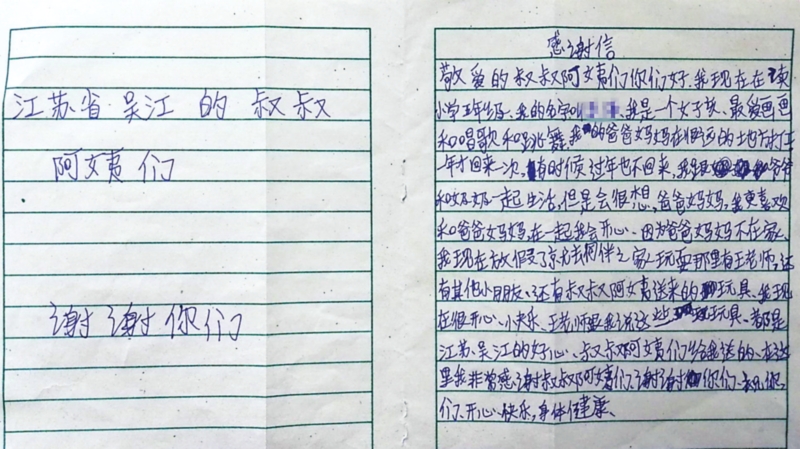 江苏省吴江的叔叔
阿姨们
谢谢你们
感谢信
敬爱的叔叔阿姨们你们好、我现在在读
小学五年级、我的名字叫 、我是一个女孩、最爱画画
和唱歌和跳舞、我的爸爸妈妈在很远的地方打工
年才回来一次,有时候过年也不回来,我跟爷爷
和奶奶一起生活,但是会很想,爸爸妈妈,我更喜欢
和爸爸妈妈,在一起我会开心、因为爸爸妈妈不在家、
我现在放假了就去同伴之家玩耍那里有王老师,还
有其他小朋友、还有叔叔阿姨送来的玩具、我现
在很开心、小快乐、王老师跟我说这些玩具、都是
江苏、吴江的好心、叔叔阿姨们给我送的、在这
里我非常感谢叔叔阿姨们、谢谢你们、祝、你、
们、开心、快乐,身体健康、